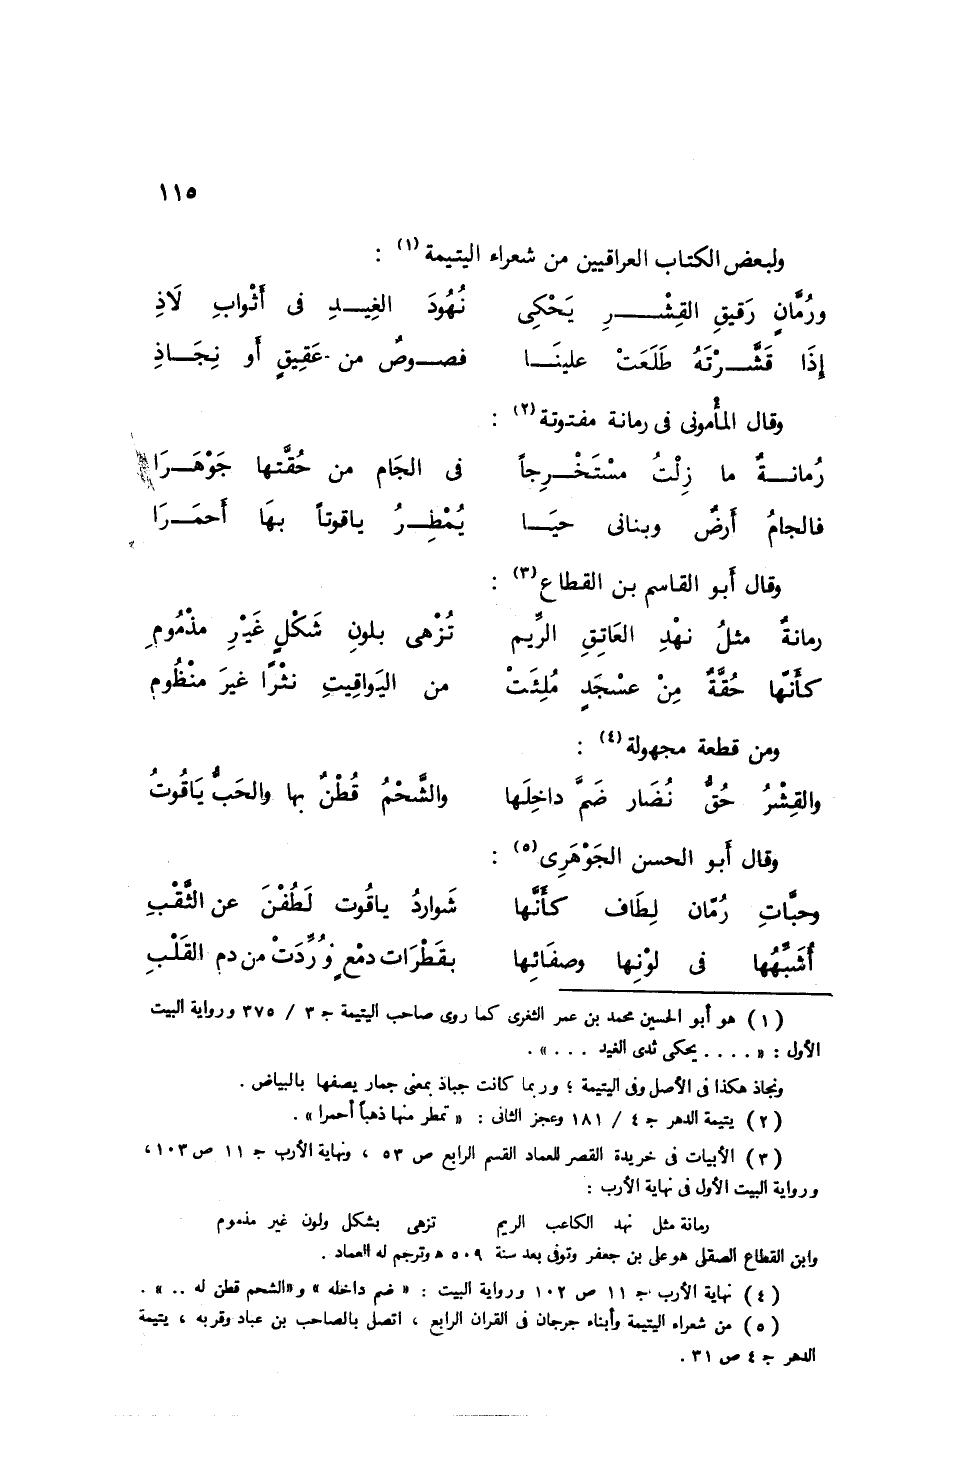 ١١٥
ولبعض الكتاب العراقيين من شعراء اليتيمة (١) :
ورُمَّانٍ رَقيقِ القِشْـــرِ يَحْكِى نُهُودَ الغِيــدِ فى أَثْوابِ لَاذِ
إِذَا قَشَّــرْتَهُ طَلَعَتْ علينَـا فصــوصٌ من عَقِيقٍ أو نِجَــاذِ
وقال المأمونى فى رمانة مفتوتة (٢) :
رُمانــةٌ ما زِلْتُ مسْتَخْـرِجاً فى الجَام من حُقَّتها جَوْهَــرَا
فالجامُ أَرضٌ وبنانى حيَـا يُمْطِـرُ ياقوتاً بهَا أَحمَـرَا
وقال أَبو القاسم بن القطاع (٣) :
رمانةٌ مثلُ نهْدِ العَاتِقِ الرِّيم تُزْهى بلونِ شَكْلٍ غَيْرِ مذْمُومِ
كأَنَّها حُقَّةٌ مِنْ عسْجَدٍ مُلِئَتْ من اليَواقِيتِ نثْرًا غيرَ منْظُومِ
ومن قطعة مجهولة (٤) :
والقِشْرُ حُقُّ نُضَار ضَمَّ داخِلَها والشَّحْمُ قُطْنٌ بها والحَبُّ يَاقُوتُ
وقال أَبو الحسن الجَوْهَرِى (٥) :
وحبَّاتِ رُمّان لِطَاف كأَنَّها شَواردُ ياقُوت لَطُفْنَ عن الثَّقْبِ
أُشَبِّهُها فى لوْنِها وصفَائِها بقَطْرَات دمْعٍ وُرِّدَتْ من دم القَلْبِ
(١) هو أبو الحسين محمد بن عمر الثغرى كما روى صاحب اليتيمة جـ ٣ / ٣٧٥ ورواية البيت
الأول : « .... يحكى ثدى الغيد ... » .
ونجاذ هكذا فى الأصل وفى اليتيمة ؛ وربما كانت جباذ بمعنى جمار يصفها بالبياض .
(٢) يتيمة الدهر جـ ٤ / ١٨١ وعجز الثانى : « تمطر منها ذهباً أحمرا » .
(٣) الأبيات فى خريدة القصر للعماد القسم الرابع ص ٥٣ ، ونهاية الأرب جـ ١١ ص ١٠٣ ،
ورواية البيت الأول فى نهاية الأرب :
رمانة مثل نهد الكاعب الريم تزهى بشكل ولون غير مذموم
وابن القطاع الصقلى هو على بن جعفر وتوفى بعد سنة ٥٠٩ هـ وترجم له العماد .
(٤) نهاية الأرب جـ ١١ ص ١٠٢ ورواية البيت : « ضم داخله » و«الشحم قطن له .. » .
(٥) من شعراء اليتيمة وأبناء جرجان فى القران الرابع ، اتصل بالصاحب بن عباد وقربه ، يتيمة
الدهر جـ ٤ ص ٣١ .